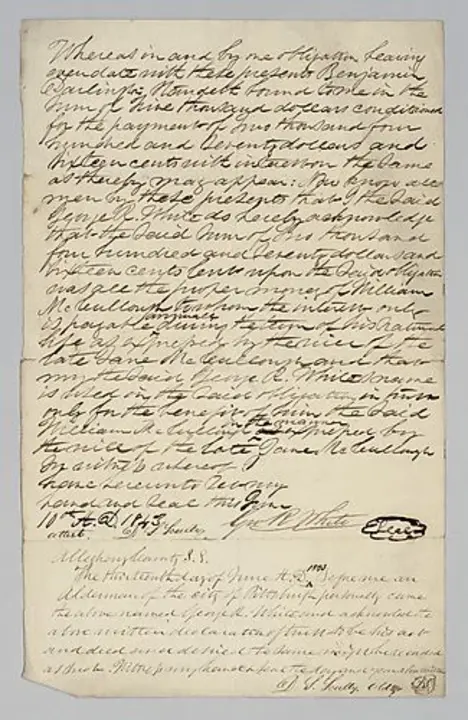 Whereas in and by one obligation bearing
even date with these presents Benjamin
Darlington, Standeth bound to me in the
sum of Nine thousand dollars conditioned
for the payment of Two thousand four
hundred and Seventy dollars and
Sixteen cents with interest on the same
as thereby may appear: Now know all
men by these presents that I the said
George R. White do hereby acknowledge
that the said sum of Two thousand
four hundred and Seventy dollars and
Sixteen cents lent upon the said obligation
was all the proper money of William
McCullough to whom the interest only
is payable annually during the term of his natural
life as expressed by the will of the
late Jane McCullough and that
my the said George R. White's name
is used on the said obligation in trust
only for the benefit of him the said
William McCullough in the manner expressed by
the will of the late Jane McCullough
In witness whereof I
have hereunto set my
hand and seal this June
10th A.D. 1843
attest. D. S. Scully Geo R White Seal
Allegheny County S.S.
The thirteenth day of June A.D. 1843 Before me an
Alderman of the city of Pittsburgh personally came
the above named George R. White and acknowledged the
above written declaration of trust to be his act
and deed and desired the same might be recorded
as such. Witness my hand & seal the day and year
D. S. Scully Aldn